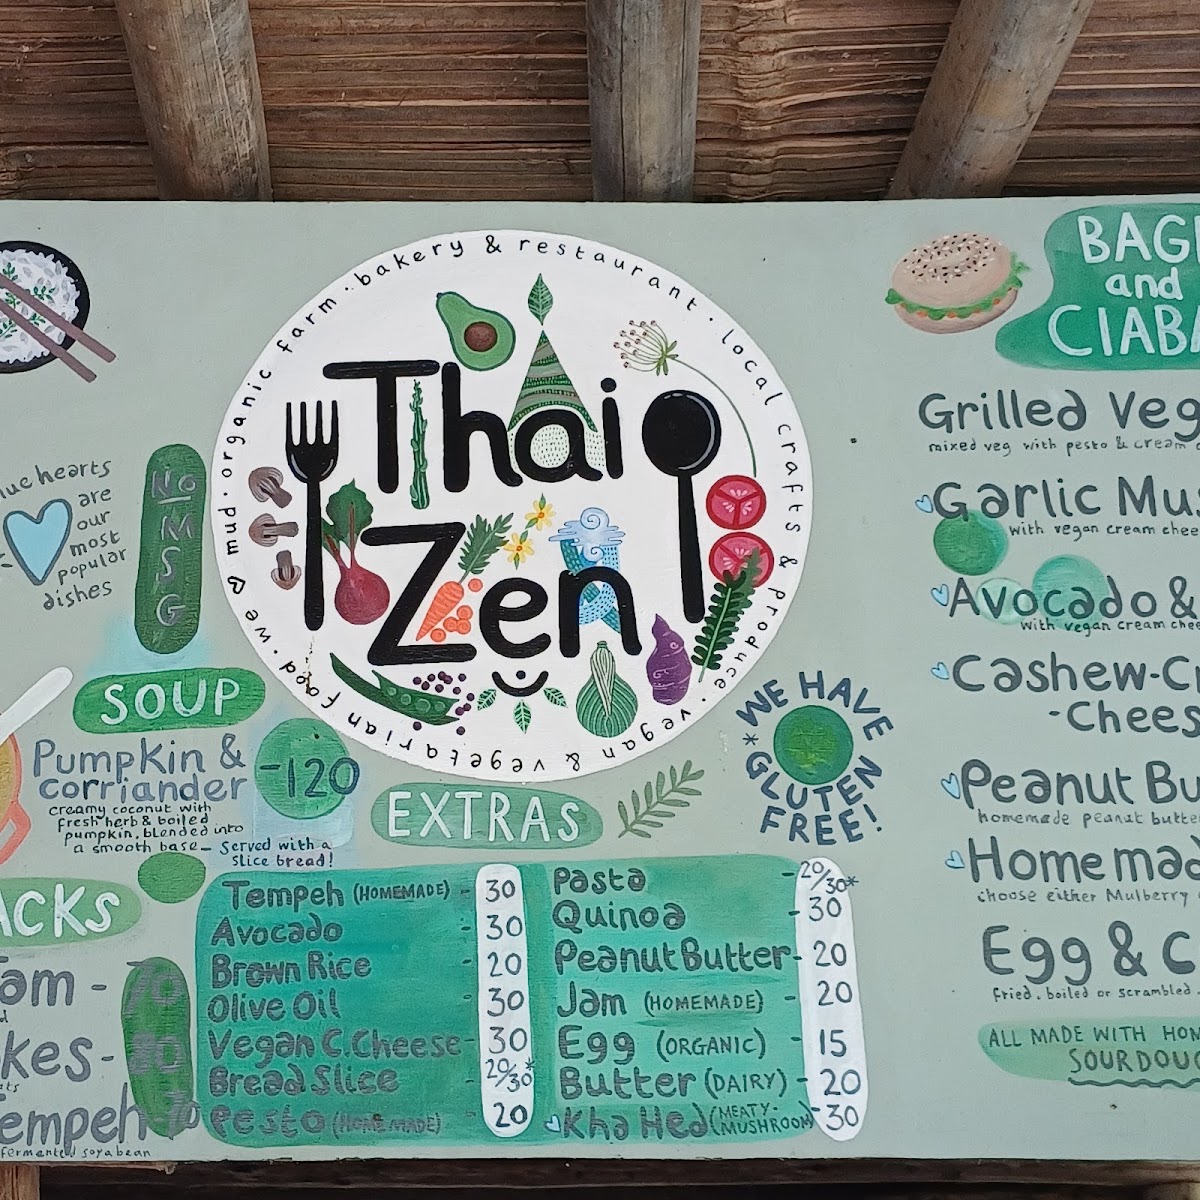 organic farm · bakery & restaurant · local crafts & produce · vegan & vegetarian food · we ♡ mud ·
Thai
Zen
hearts
are
our
most
popular
dishes
No
M
S
G
SOUP
Pumpkin &
corriander
-120
creamy coconut with
fresh herb & boiled
pumpkin, blended into
a smooth base— served with a
slice bread!
ACKS
am - 70
kes - 80
Tempeh 70
fermented soyabean
EXTRAS
Tempeh (HOMEMADE) - 30
Avocado - 30
Brown Rice - 20
Olive Oil - 30
Vegan C.Cheese - 30
Bread Slice 20/30*
Pesto (HOMEMADE) 20
Pasta - 20/30*
Quinoa - 30
Peanut Butter - 20
Jam (HOMEMADE) - 20
Egg (ORGANIC) - 15
Butter (DAIRY) - 20
Kha Hed (MEATY-MUSHROOM) - 30
*WE HAVE
*GLUTEN
FREE!
BAG
and
CIABA
Grilled Veg
mixed veg with pesto & cream
Garlic Mu
with vegan cream chee
Avocado &
with vegan cream chee
Cashew-C
-Chees
Peanut Bu
homemade peanut butter
Homemad
choose either Mulberry
Egg & C
fried, boiled or scrambled.
ALL MADE WITH HOM
SOURDOU